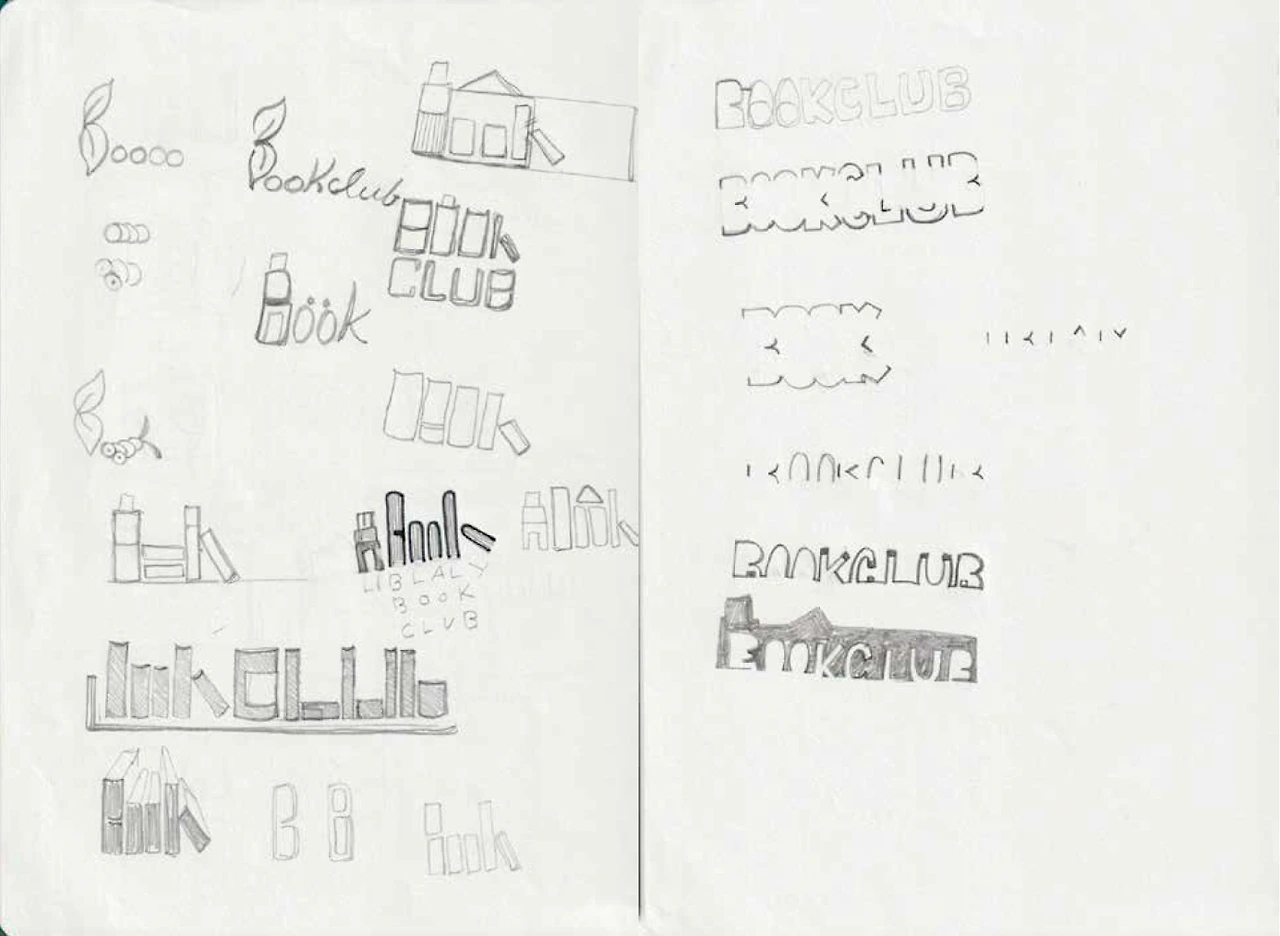 Boooo
Bookclub
BOOK
CLUB
Böök
Book
Book
Book
Book
LIBLALY
BOOK
CLUB
BOOKCLUB
Book
B B
Book
BOOKCLUB
BOOKCLUB
BOOK
BOOKCLUB
BOOKCLUB